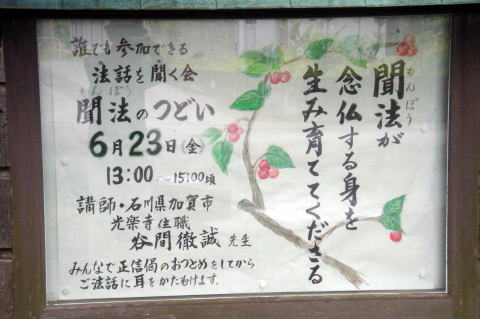 聞法が
もんぽう
念仏する身を
生み育ててくださる
誰でも参加できる
法話を聞く会
もんぽう
聞法のつどい
6月23日(金)
13:00~15:00頃
講師・石川県加賀市
光楽寺住職
谷間徹誠先生
みんなで正信偈のおつとめをしてから
ご法話に耳をかたむけます。